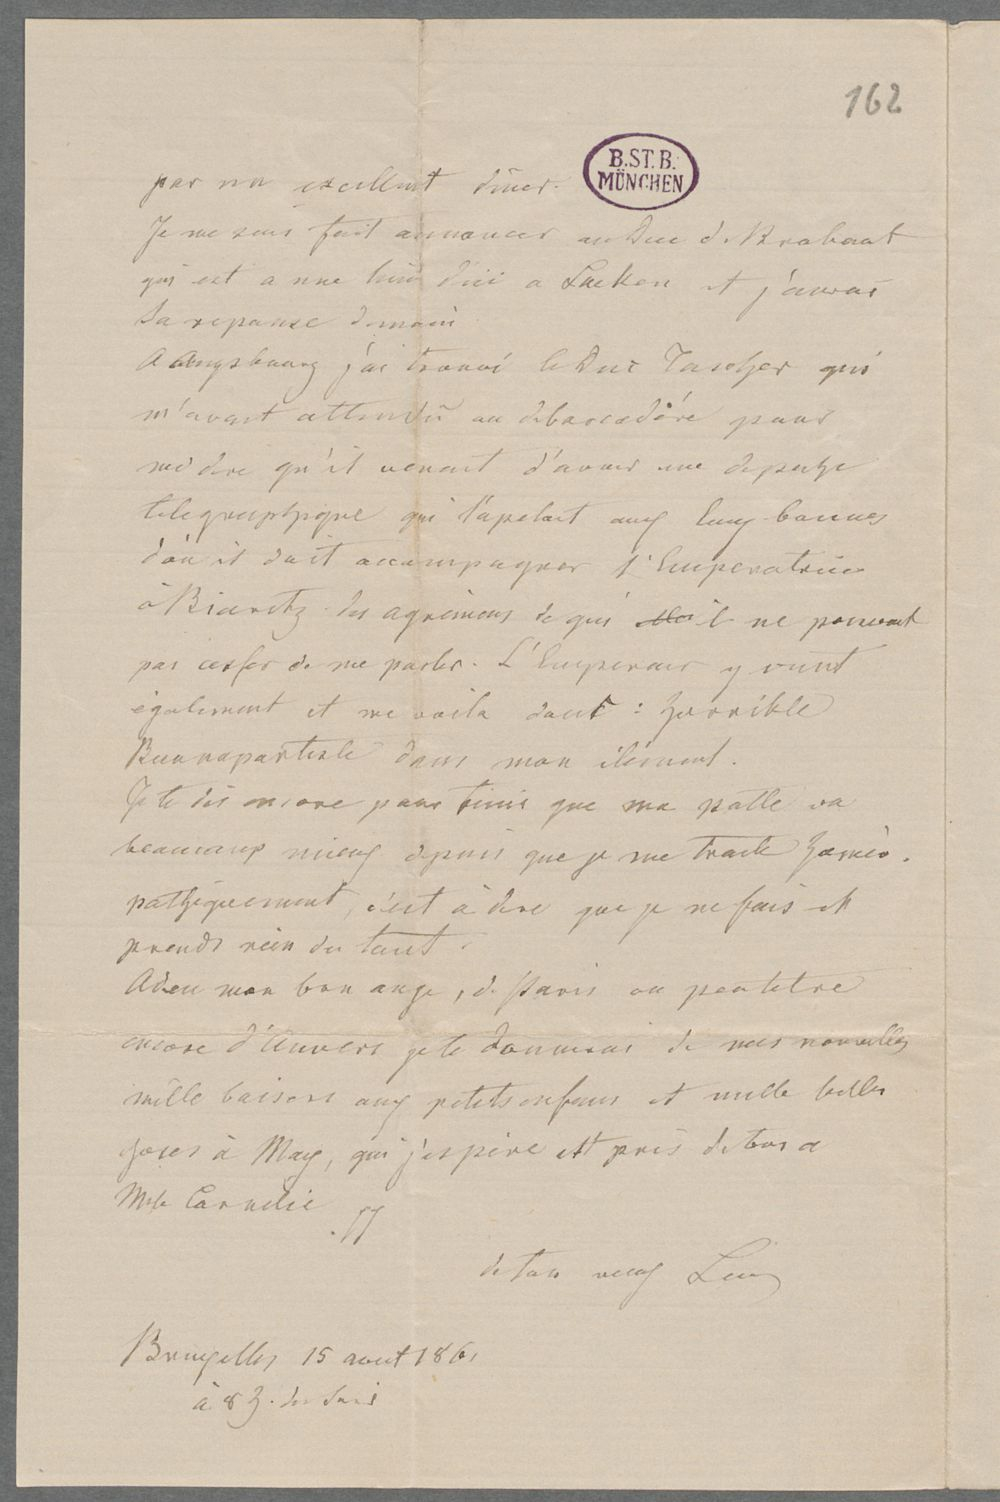 162
B.ST.B.
MÜNCHEN
par un excellent diner.
Je me suis fait annoncer au Duc de Brabant
qui est a une d'ici a Laeken et j'aurai
sa reponse demain
A Augsbourg j'ai trouvé le Duc Tascher qui
m'avait attendu au debarcadére pour
me dire qu'il venait d'avoir une depeche
telegraphique qui l'apelait aux Eaux bonnes
d'où il doit accompagner l'Imperatrice
à Biaritz des agremens de qui il ne pouvait
pas cesser de me parler. L'Empereur y vient
également et me voila donc : horrible
Buonapartiste dans mon élément.
Je te dis encore pour finir que ma patte va
beaucoup mieux depuis que je me traite homéo-
pathiquement, c'est à dire que je ne fais et
prends rien du tout.
Adieu mon bon ange, de Paris ou peutetre
encore d'Anvers je te donnerai de mes nouvelles
mille baisers aux petits enfans et mille belles
choses à May, qui j'espère est près de toi a
Mlle Cornelie
de ton vieux Louis
Bruxelles 15 aout 1861
à 8 h. du soir